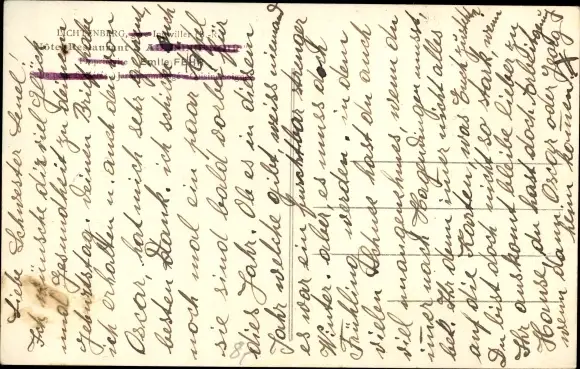 LICHTENBERG, Ingwiller
Hôtel-Restaurant
Propriétaire: Emile FEHR
Liebe Schwester Lenel!
Ich wünsche dir viel Glück
und Gesundheit zu deinem
Geburtstag. deinen Brief habe
ich erhalten u. auch den von
Oscar, hat mich sehr gefreut,
besten Dank. ich schicke euch
noch mal ein paar Äpfel
sie sind bald vorbei für
dies Jahr. Ob es in diesem
Jahr welche gibt weiss niemand
es war ein furchtbar strenger
Winter. aber es muss doch
Frühling werden. in den
vielen Schnee hast du auch
viel unangenehmes wen du
immer nach Hagendingen ist.
bei Ihr denn immer nicht alles
auf die Karten, was Euch zusteht
Du bist doch nicht so stark, wenn
Ihr auskomt bleibe lieber zu
Hause, du hast doch Arbeit genug
wen dann Oscar oder
heim kommen X